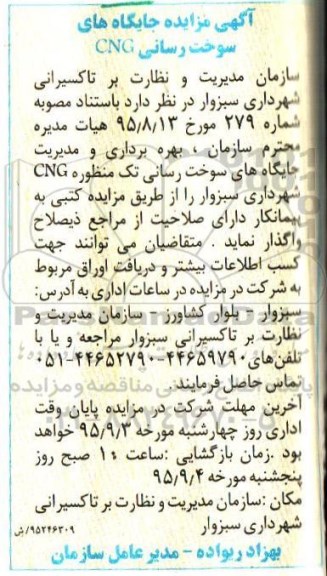 آگهی مزایده جایگاه های
سوخت رسانی CNG
سازمان مدیریت و نظارت بر تاکسیرانی
شهرداری سبزوار در نظر دارد باستناد مصوبه
شماره ۲۷۹ مورخ ۹۵٫۸٫۱۳ هیات مدیره
محترم سازمان ، بهره برداری و مدیریت
جایگاه های سوخت رسانی تک منظوره CNG
شهرداری سبزوار را از طریق مزایده کتبی به
پیمانکار دارای صلاحیت از مراجع ذیصلاح
واگذار نماید . متقاضیان می توانند جهت
کسب اطلاعات بیشتر و دریافت اوراق مربوط
به شرکت در مزایده در ساعات اداری به آدرس:
سبزوار - بلوار کشاورز - سازمان مدیریت و
نظارت بر تاکسیرانی سبزوار مراجعه و یا با
تلفن‌های ۴۴۶۵۹۷۹۰-۴۴۶۵۲۷۹۰-۰۵۱
تماس حاصل فرمایند.
آخرین مهلت شرکت در مزایده پایان وقت
اداری روز چهارشنبه مورخه ۹۵٫۹٫۳ خواهد
بود .زمان بازگشایی :ساعت ۱۰ صبح روز
پنجشنبه مورخه ۹۵٫۹٫۴
مکان :سازمان مدیریت و نظارت بر تاکسیرانی
شهرداری سبزوار
۹۵۲۴۶۳۰۹/ش
بهزاد ریواده - مدیر عامل سازمان